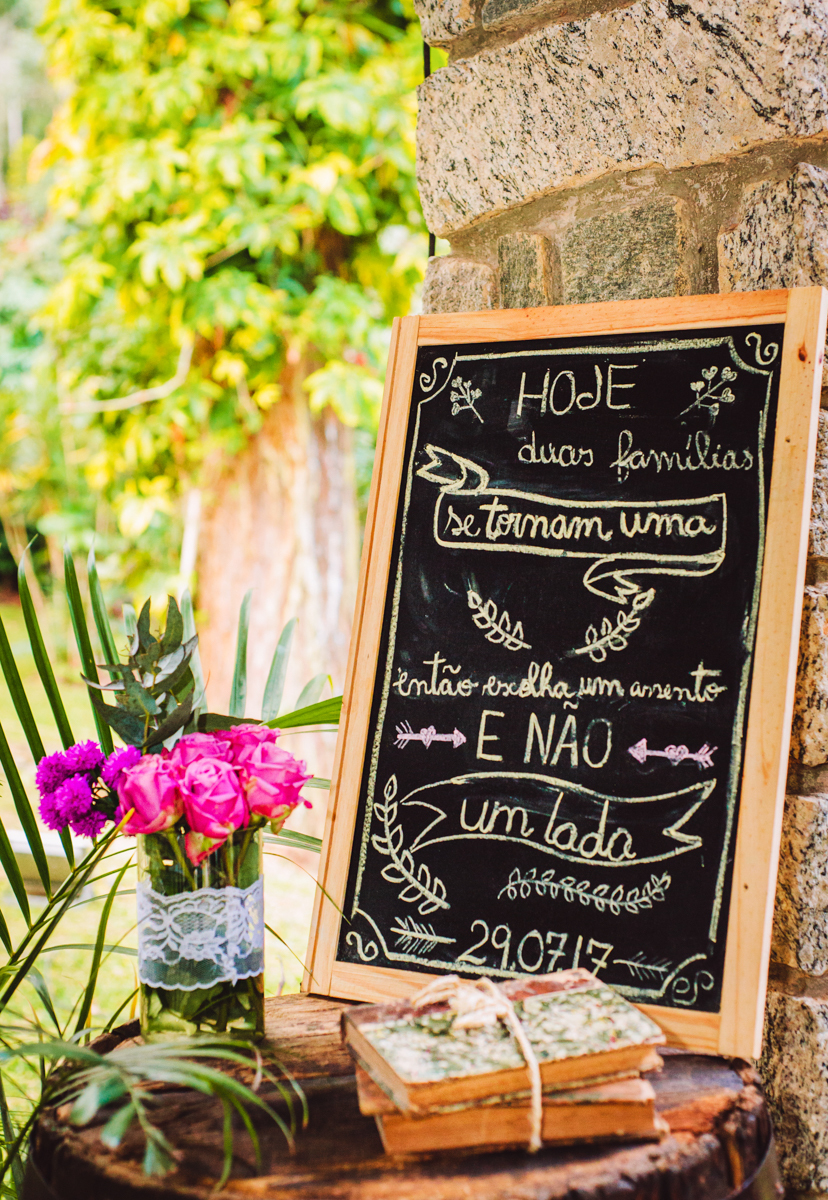 HOJE
duas famílias
se tornam uma
então escolha um assento
E NÃO
um lado
29.07.17